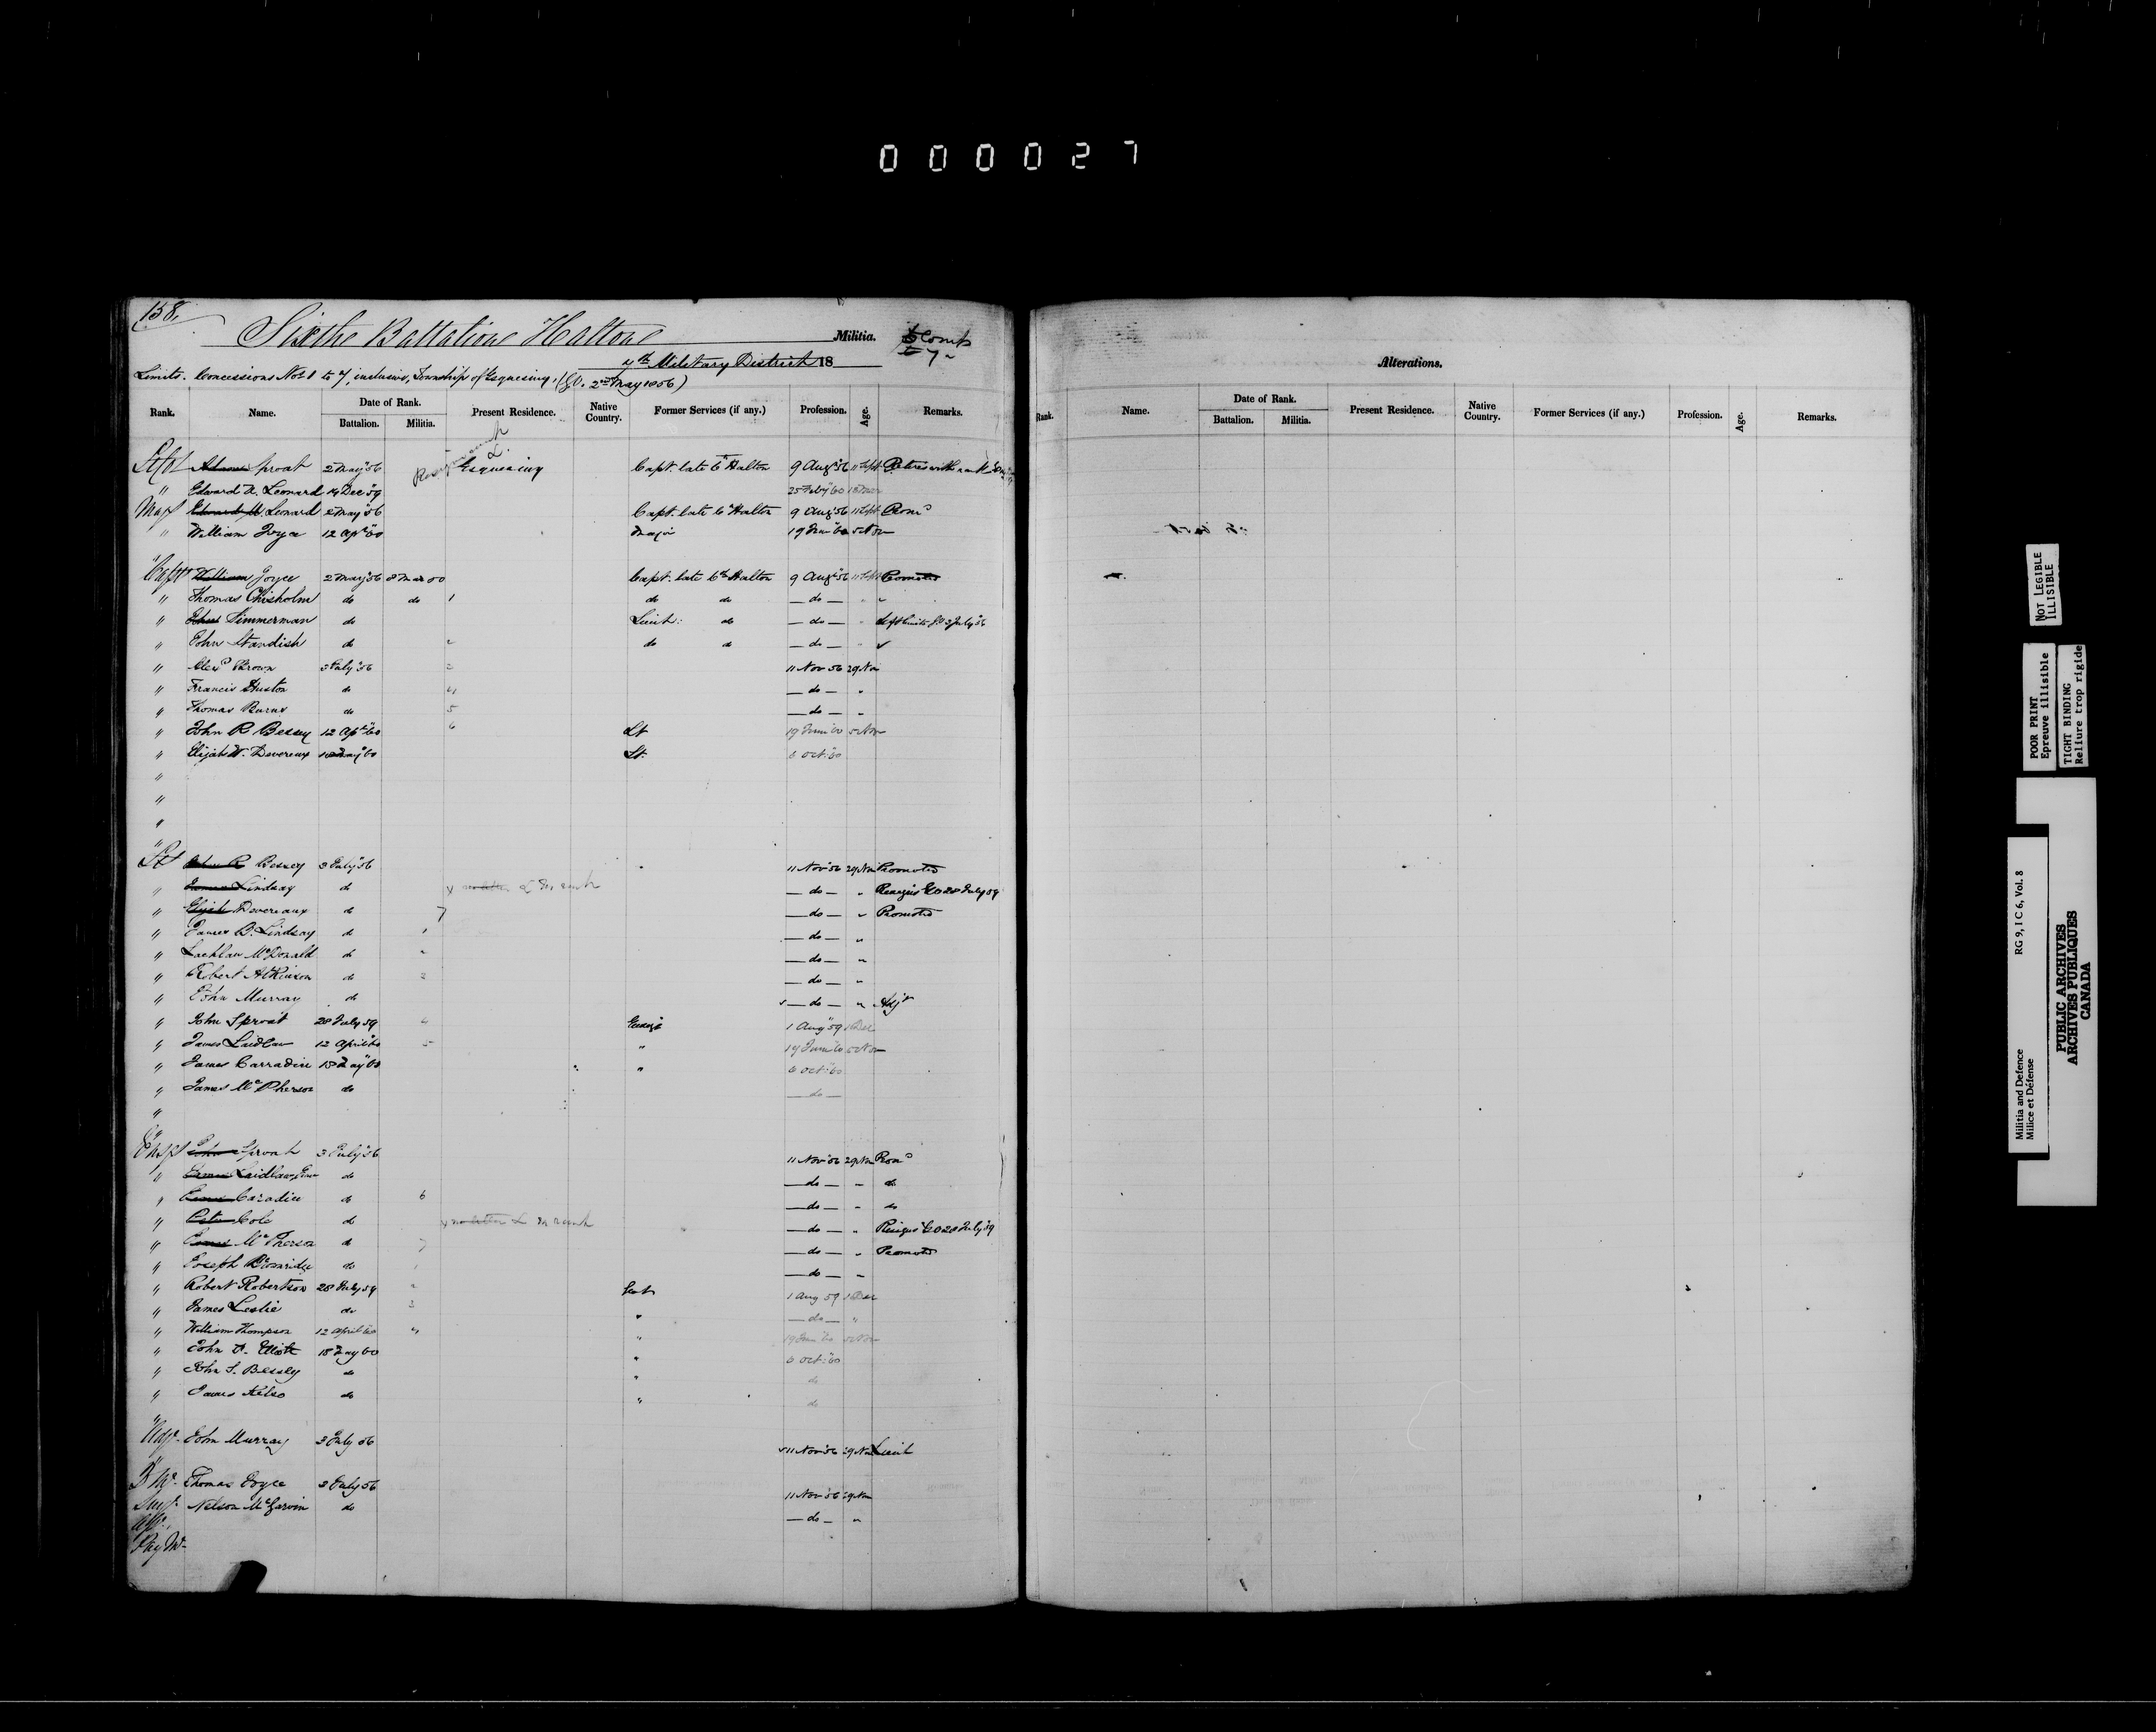 000027
158.
Sixth Battalion Halton Militia.
7th Military District 18
Limits. Concessions Nos 1 to 7, inclusive, Township of Esquesing. (G.O. 2nd May 1856)
Rank. Name. Date of Rank. Battalion. Militia. Present Residence. Native Country. Former Services (if any.) Profession. Age. Remarks.
Lt Col Sproat 2 May 56 Esquesing Capt. late 6th Halton 9 Aug 56 11 Sept Retires with rank
" Edward Leonard 14 Dec 59 25 Feby 60
Maj Leonard 2 May 56 Capt. late 6 Halton 9 Aug 56 11 Sept Prom
" William Joyce 12 Apl 60 Major 19 June 60 5 Nov
Capt William Joyce 2 May 56 Capt. late 6th Halton 9 Augt 56 11 Sept Promoted
" Thomas Chisholm do do 1 do do do "
" Simmerman do Lieut: do do " left limits G.O. 3 July 56
" John Standish do 2 do do do "
" Alexr Brown 3 July 56 3 11 Nov 56 29 Nov
" Francis Huston do 4 do "
" Thomas Burns do 5 do "
" John R Bessey 12 Apl 60 6 Lt 19 June 60 5 Nov
" Elijah W. Devereux 18 May 60 Lt. 6 Oct. 60
"
"
"
"
Lt John R Bessey 3 July 56 11 Nov 56 29 Nov Promoted
" James Lindsay do do " Resigns G.O. 28 July 59
" Elijah Devereaux do 7 do " Promoted
" James B. Lindsay do 1 do "
" Lachlan McDonald do 2 do "
" Robert Atkinson do 3 do "
" John Murray do do " Adjt
" John Sproat 28 July 59 4 Ensign 1 Aug 59 1 Dec
" James Laidlaw 12 April 60 5 " 19 June 60 5 Nov
" James Carradice 18 May 60 " 6 Oct. 60
" James McPherson do do
"
"
Ensgs John Sproat 3 July 56 11 Nov 56 29 Nov Prom
" James Laidlaw do do do
" James Caradice do 6 do do
" Peter Cole do do " Resigns G.O. 28 July 59
" James McPherson do 7 do " Promoted
" Joseph do 1 do "
" Robert Robertson 28 July 59 2 Gent 1 Aug 59 1 Dec
" James Leslie do 3 " do "
" William Thompson 12 April 60 4 " 19 June 60 5 Nov
" John Elliott 18 May 60 " 6 Oct. 60
" John S. Bessey do " do
" James Kelso do " do
"
Adjt. John Murray 3 July 56 11 Nov 56 29 Nov Lieut
Q Mr. Thomas Joyce 3 July 56 11 Nov 56 29 Nov
Surgn. Nelson McGarvin do do "
Asst.
Pay Mr.
Alterations.
Rank. Name. Date of Rank. Battalion. Militia. Present Residence. Native Country. Former Services (if any.) Profession. Age. Remarks.
NOT LEGIBLE
ILLISIBLE
POOR PRINT
Epreuve illisible
TIGHT BINDING
Reliure trop rigide
Militia and Defence RG 9, I C 6, Vol. 8
Milice et Défense
PUBLIC ARCHIVES
ARCHIVES PUBLIQUES
CANADA